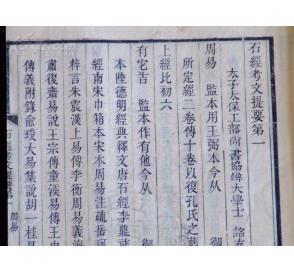 石經考文提要第一
太子太保工部尚書協辦大學士
周易 監本用王弼本今从
所定經二卷傳十卷以復孔氏之舊
上經比初六
有它吉 監本作有他今从
本陸德明經典釋文唐石經李鼎祚
經南宋巾箱本宋本周易注疏岳
梓言朱震漢上易傳李衡周易義海
肅復齋易說王宗傳童溪易傳王
傳義附錄俞琰大易集說胡一桂易
石經考文提要 周易